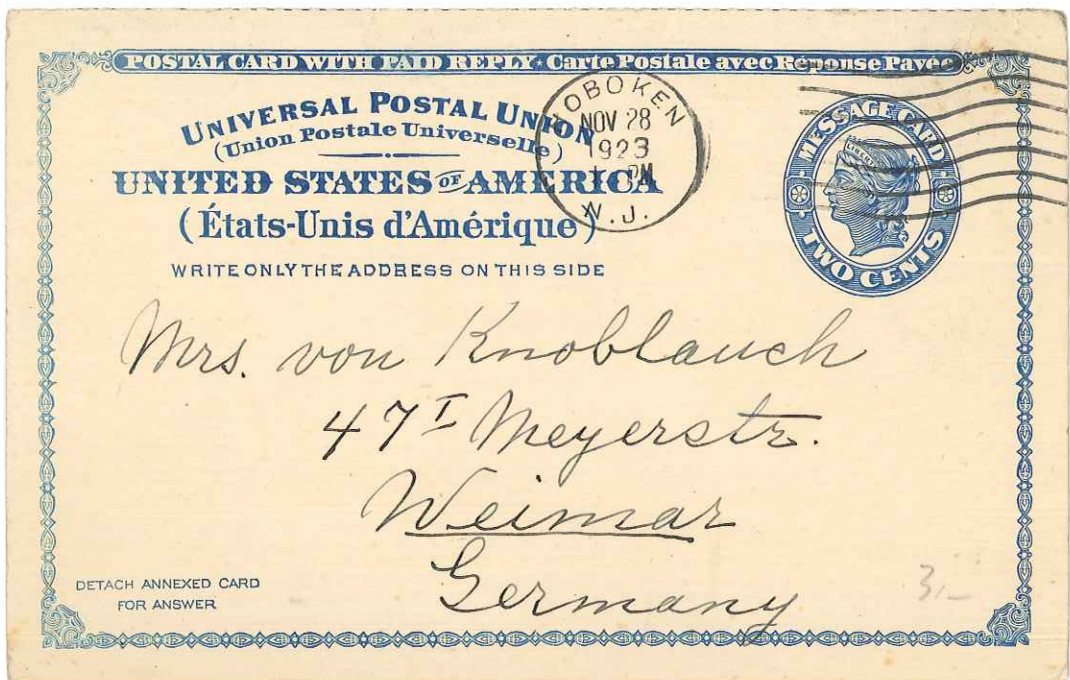 POSTAL CARD WITH PAID REPLY · Carte Postale avec Réponse Payée
UNIVERSAL POSTAL UNION
(Union Postale Universelle)
UNITED STATES OF AMERICA
(États-Unis d'Amérique)
WRITE ONLY THE ADDRESS ON THIS SIDE
HOBOKEN
NOV 28
1923
PM
N.J.
MESSAGE CARD
LIBERTY
TWO CENTS
Mrs. von Knoblauch
47 I Meyerstr.
Weimar
Germany
DETACH ANNEXED CARD
FOR ANSWER
3,–